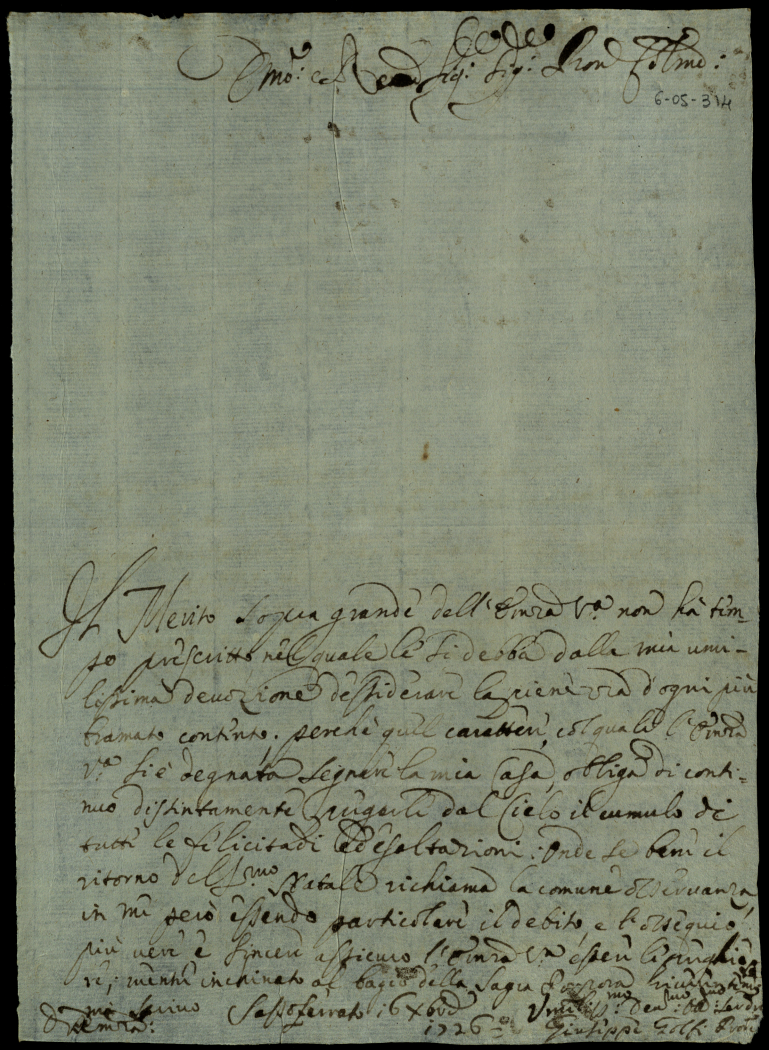 Emo: e R Sig: Sig: Pron Colmo:
6-05-314
Il Merito sopra grande dell'Emza Va non hà tem-
po prescritto nel quale le si debba dalla mia umi-
lissima devozione dessiderare la pienezza d'ogni più
bramato contento. perche quel carattere, col quale l'Emza
Va si è degnata segnare la mia Casa, obliga di conti-
nuo distintamente pregarli dal Cielo il cumulo di
tutte le felicitadi ed esaltazioni: Onde se bene il
ritorno del Smo Natale richiama la comune osservanza,
in me però essendo particolare il debito, e l'ossequio
più vere e sincere assicuro l'Emza Va essere le preghie-
re, mentre inchinato al bagio della Sagra Porpora
mi scrivo Sassoferrato 16 Xbre
D V Emza: 1726 Umiliss:mo Dev:mo
Giuseppe